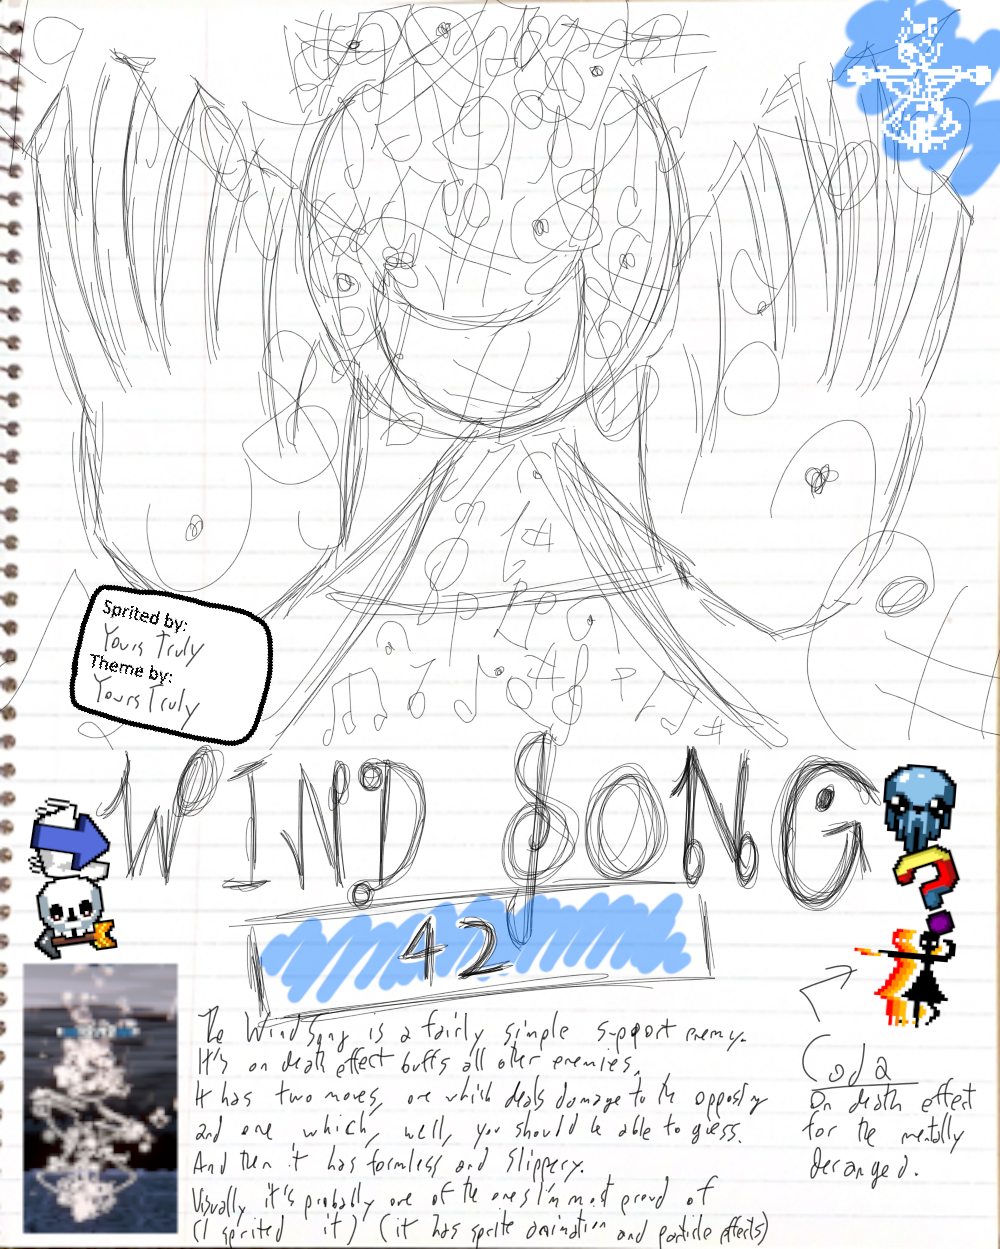 Sprited by:
Yours Truly
Theme by:
Yours Truly
WIND SONG
42
The Windsong is a fairly simple support enemy.
It's on death effect buffs all other enemies.
It has two moves, one which deals damage to the opposing
and one which, well, you should be able to guess.
And then it has formless and slippery.
Visually it's probably one of the ones I'm most proud of
(I sprited it) (it has sprite animation and particle effects)
Coda
On death effect
for the mentally
deranged.